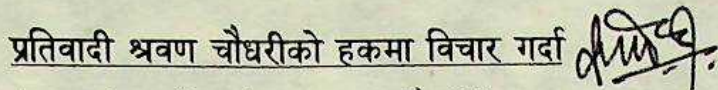 प्रतिवादी श्रवण चौधरीको हकमा विचार गर्दा